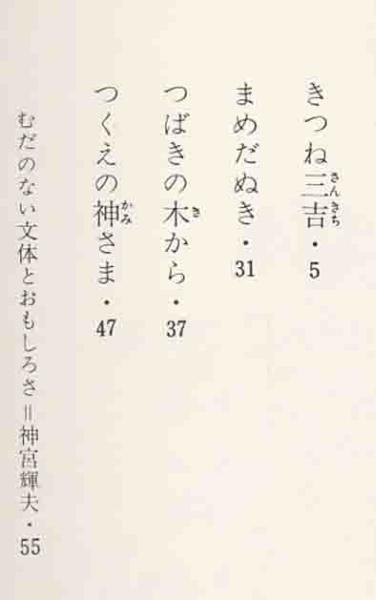 きつね三吉・5
まめだぬき・31
つばきの木から・37
つくえの神さま・47
むだのない文体とおもしろさ＝神宮輝夫・55